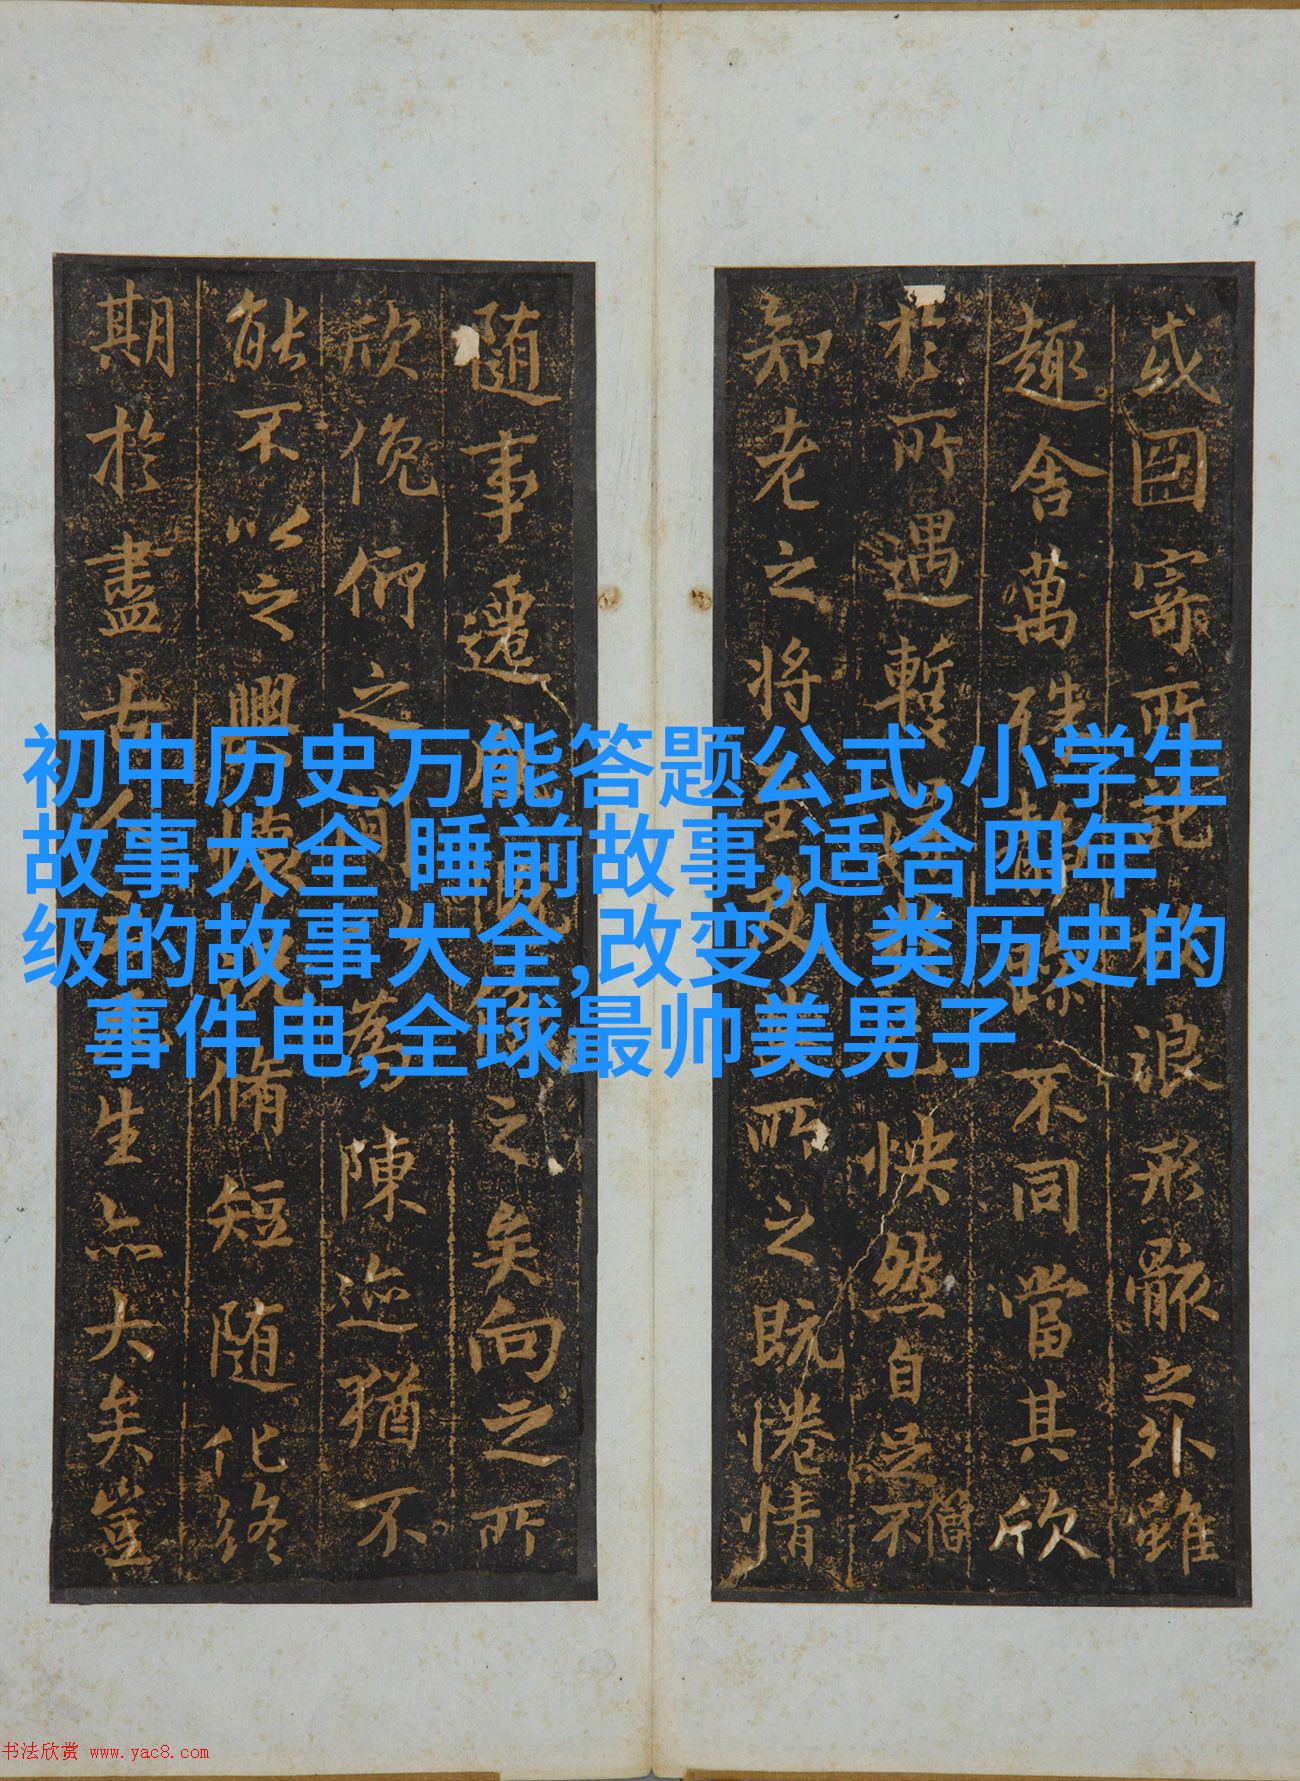 或因寄所託放浪形骸之外雖
趣舍萬殊靜躁不同當其欣
於所遇暫得於己怏然自足不
僧
知老之將至及其所之既惓情
隨事遷感慨係之矣向之所
欣俛仰之間以為陳迹猶不
能不以之興懷況脩短隨化終
期於盡古人云死生亦大矣豈
初中历史万能答题公式,小学生
故事大全 睡前故事,适合四年
级的故事大全,改变人类历史的
事件电,全球最帅美男子
书法欣赏 www.yac8.com